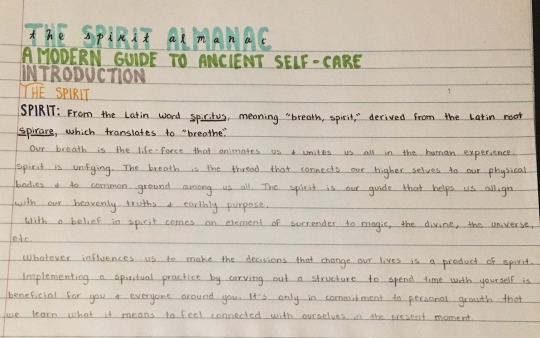 THE SPIRIT ALMANAC
the spirit almanac
A MODERN GUIDE TO ANCIENT SELF-CARE
INTRODUCTION
THE SPIRIT
SPIRIT: From the Latin word spiritus, meaning "breath, spirit," derived from the Latin root
spirare, which translates to "breathe."
Our breath is the life-force that animates us + unites us all in the human experience.
Spirit is unifying. The breath is the thread that connects our higher selves to our physical
bodies + to common ground among us all. The spirit is our guide that helps us allign
with our heavenly truths + earthly purpose.
With a belief in spirit comes an element of surrender to magic, the divine, the universe,
etc.
Whatever influences us to make the decisions that change our lives is a product of spirit.
Implementing a spiritual practice by carving out a structure to spend time with yourself is
beneficial for you + everyone around you. It's only in commitment to personal growth that
we learn what it means to feel connected with ourselves in the present moment.